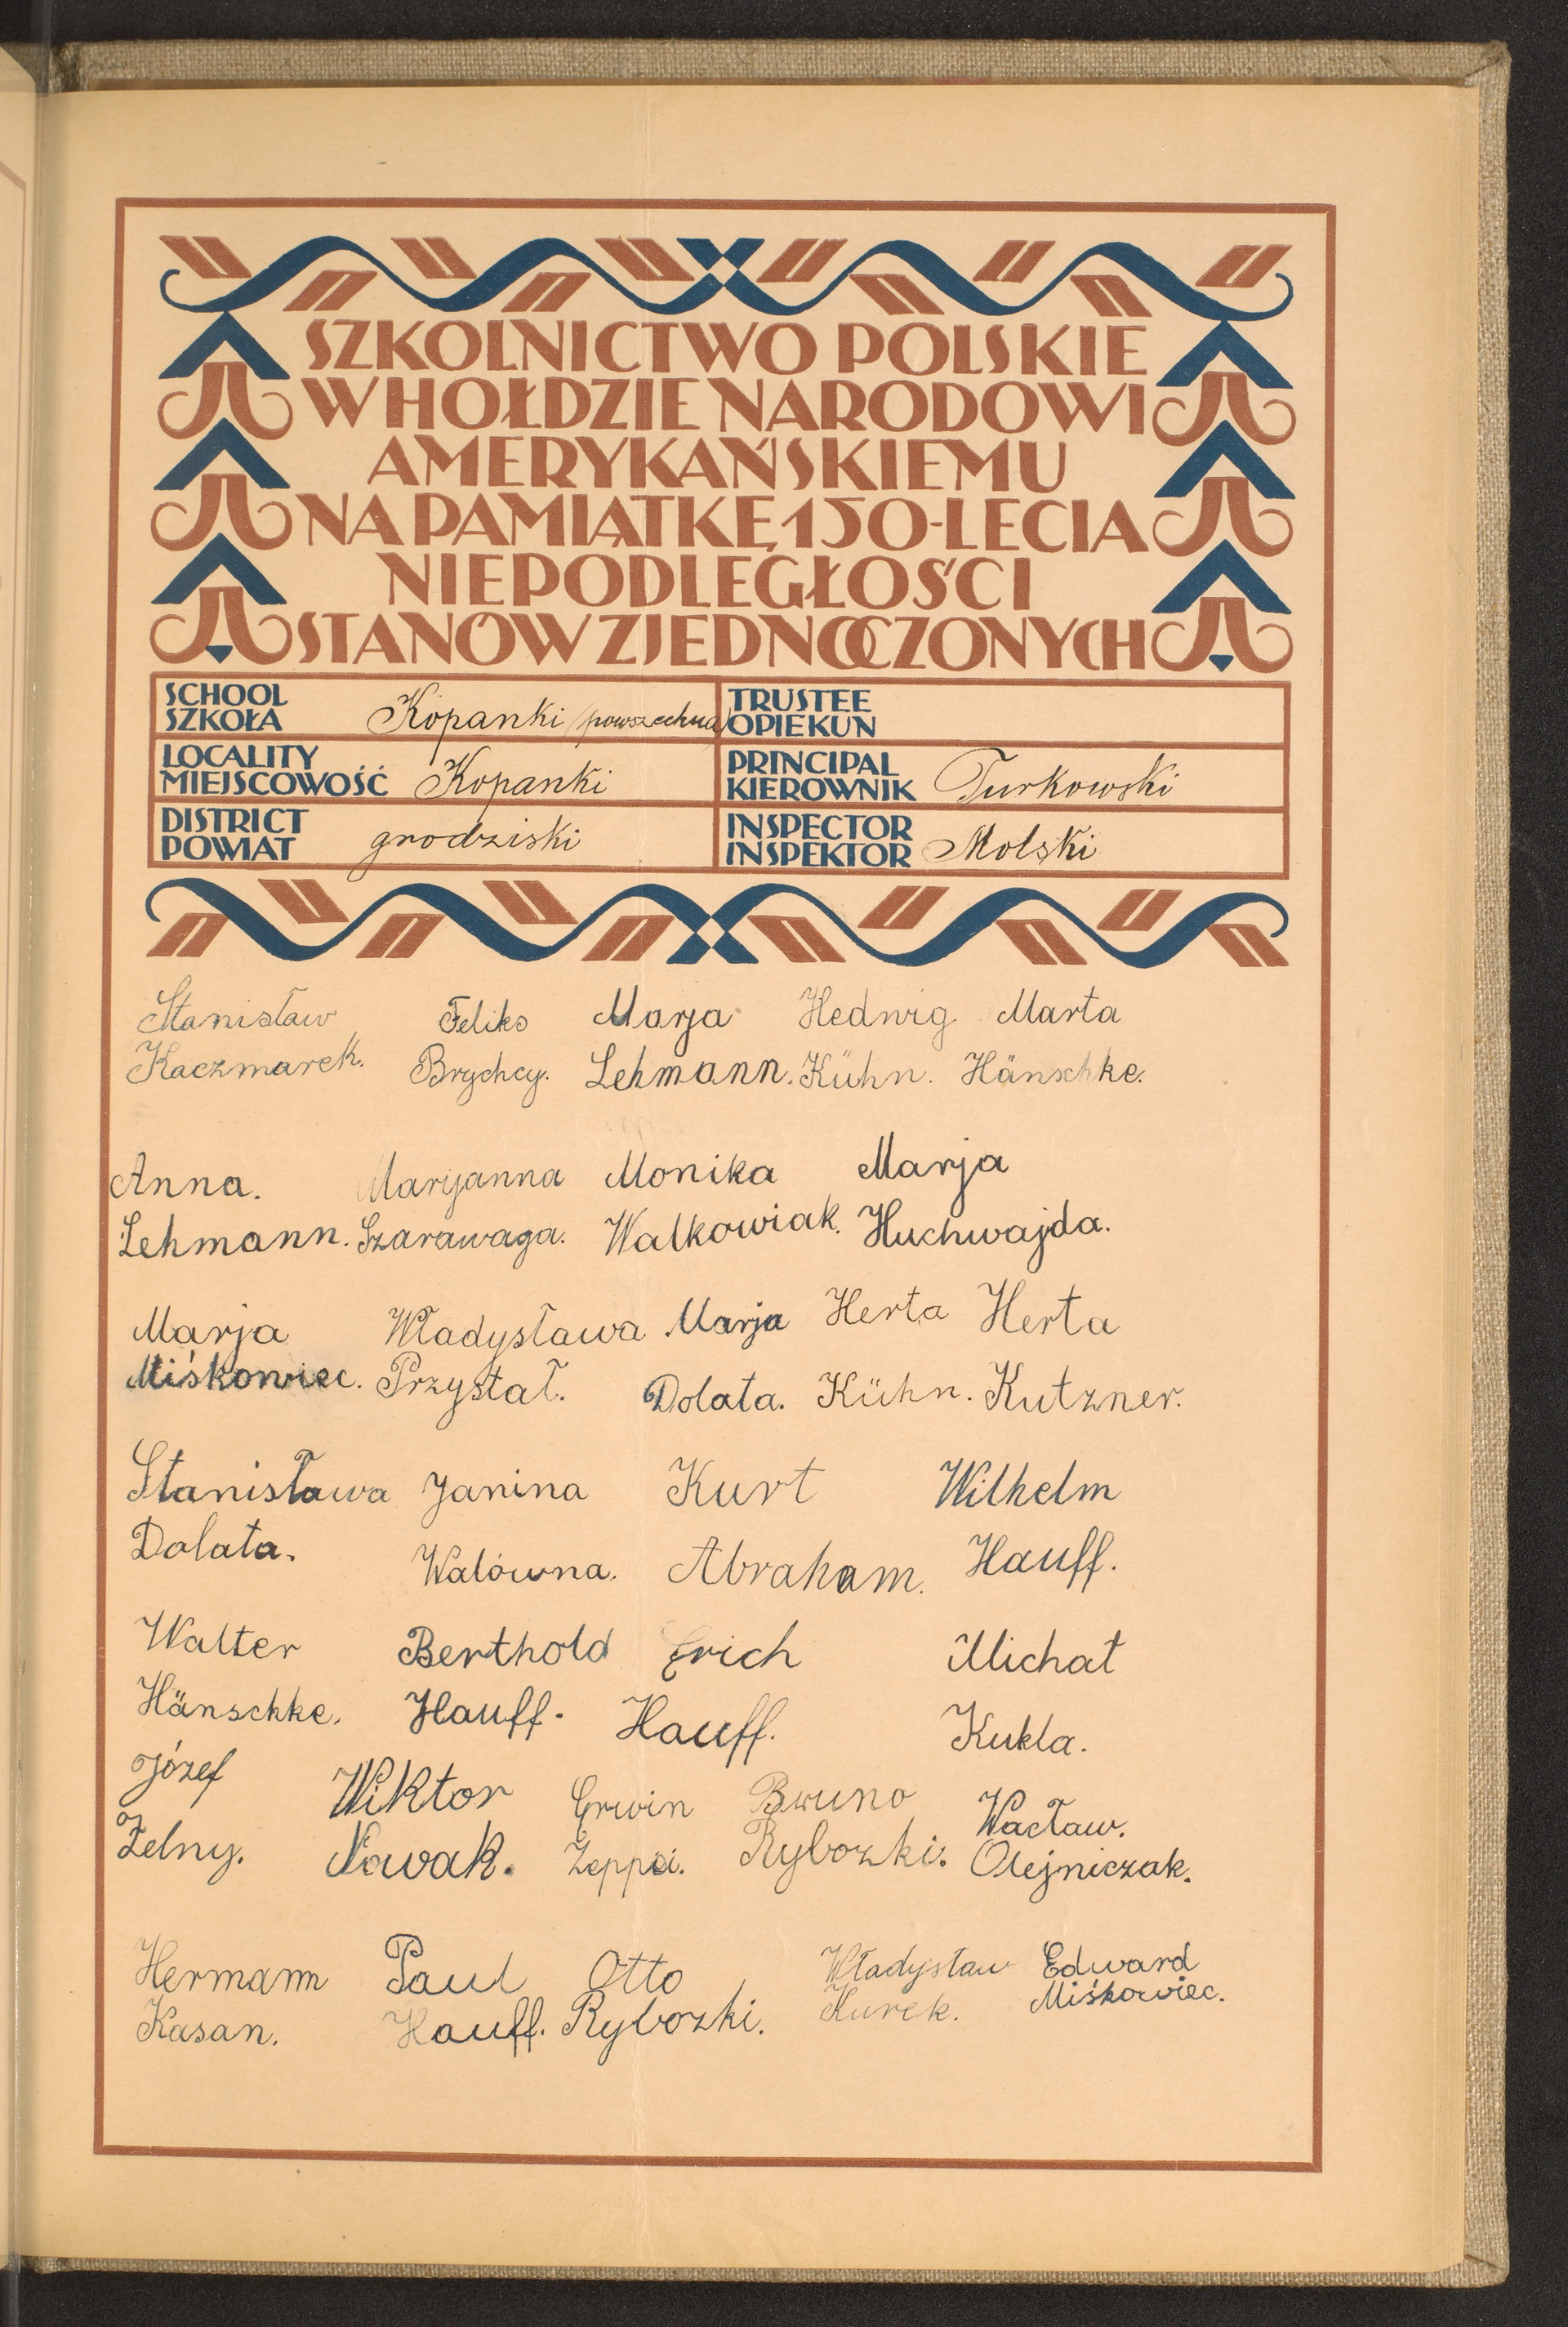 SZKOLNICTWO POLSKIE
W HOŁDZIE NARODOWI
AMERYKAŃSKIEMU
NA PAMIĄTKĘ 150-LECIA
NIEPODLEGŁOŚCI
STANÓW ZJEDNOCZONYCH
SCHOOL
SZKOŁA Kopanki (powszechna)
TRUSTEE
OPIEKUN
LOCALITY
MIEJSCOWOŚĆ Kopanki
PRINCIPAL
KIEROWNIK Turkowski
DISTRICT
POWIAT grodziski
INSPECTOR
INSPEKTOR Molski
Stanisław Feliks Marja Hedwig Marta
Kaczmarek. Brychcy. Lehmann. Kühn. Hänschke.
Anna. Maryanna Monika Marja
Lehmann. Szarawaga. Walkowiak. Huchwajda.
Marja Władysława Marja Herta Herta
Miśkowiec. Przystał. Dolata. Kühn. Kutzner.
Stanisława Janina Kurt Wilhelm
Dolata. Walówna. Abraham. Hauff.
Walter Berthold Erich Michał
Hänschke. Hauff. Hauff. Kukla.
Józef Wiktor Erwin Bruno Wacław.
Zelny. Nowak. Rybozki. Olejniczak.
Hermann Paul Otto Władysław Edward
Kasan. Hauff. Rybozki. Kurek. Miśkowiec.